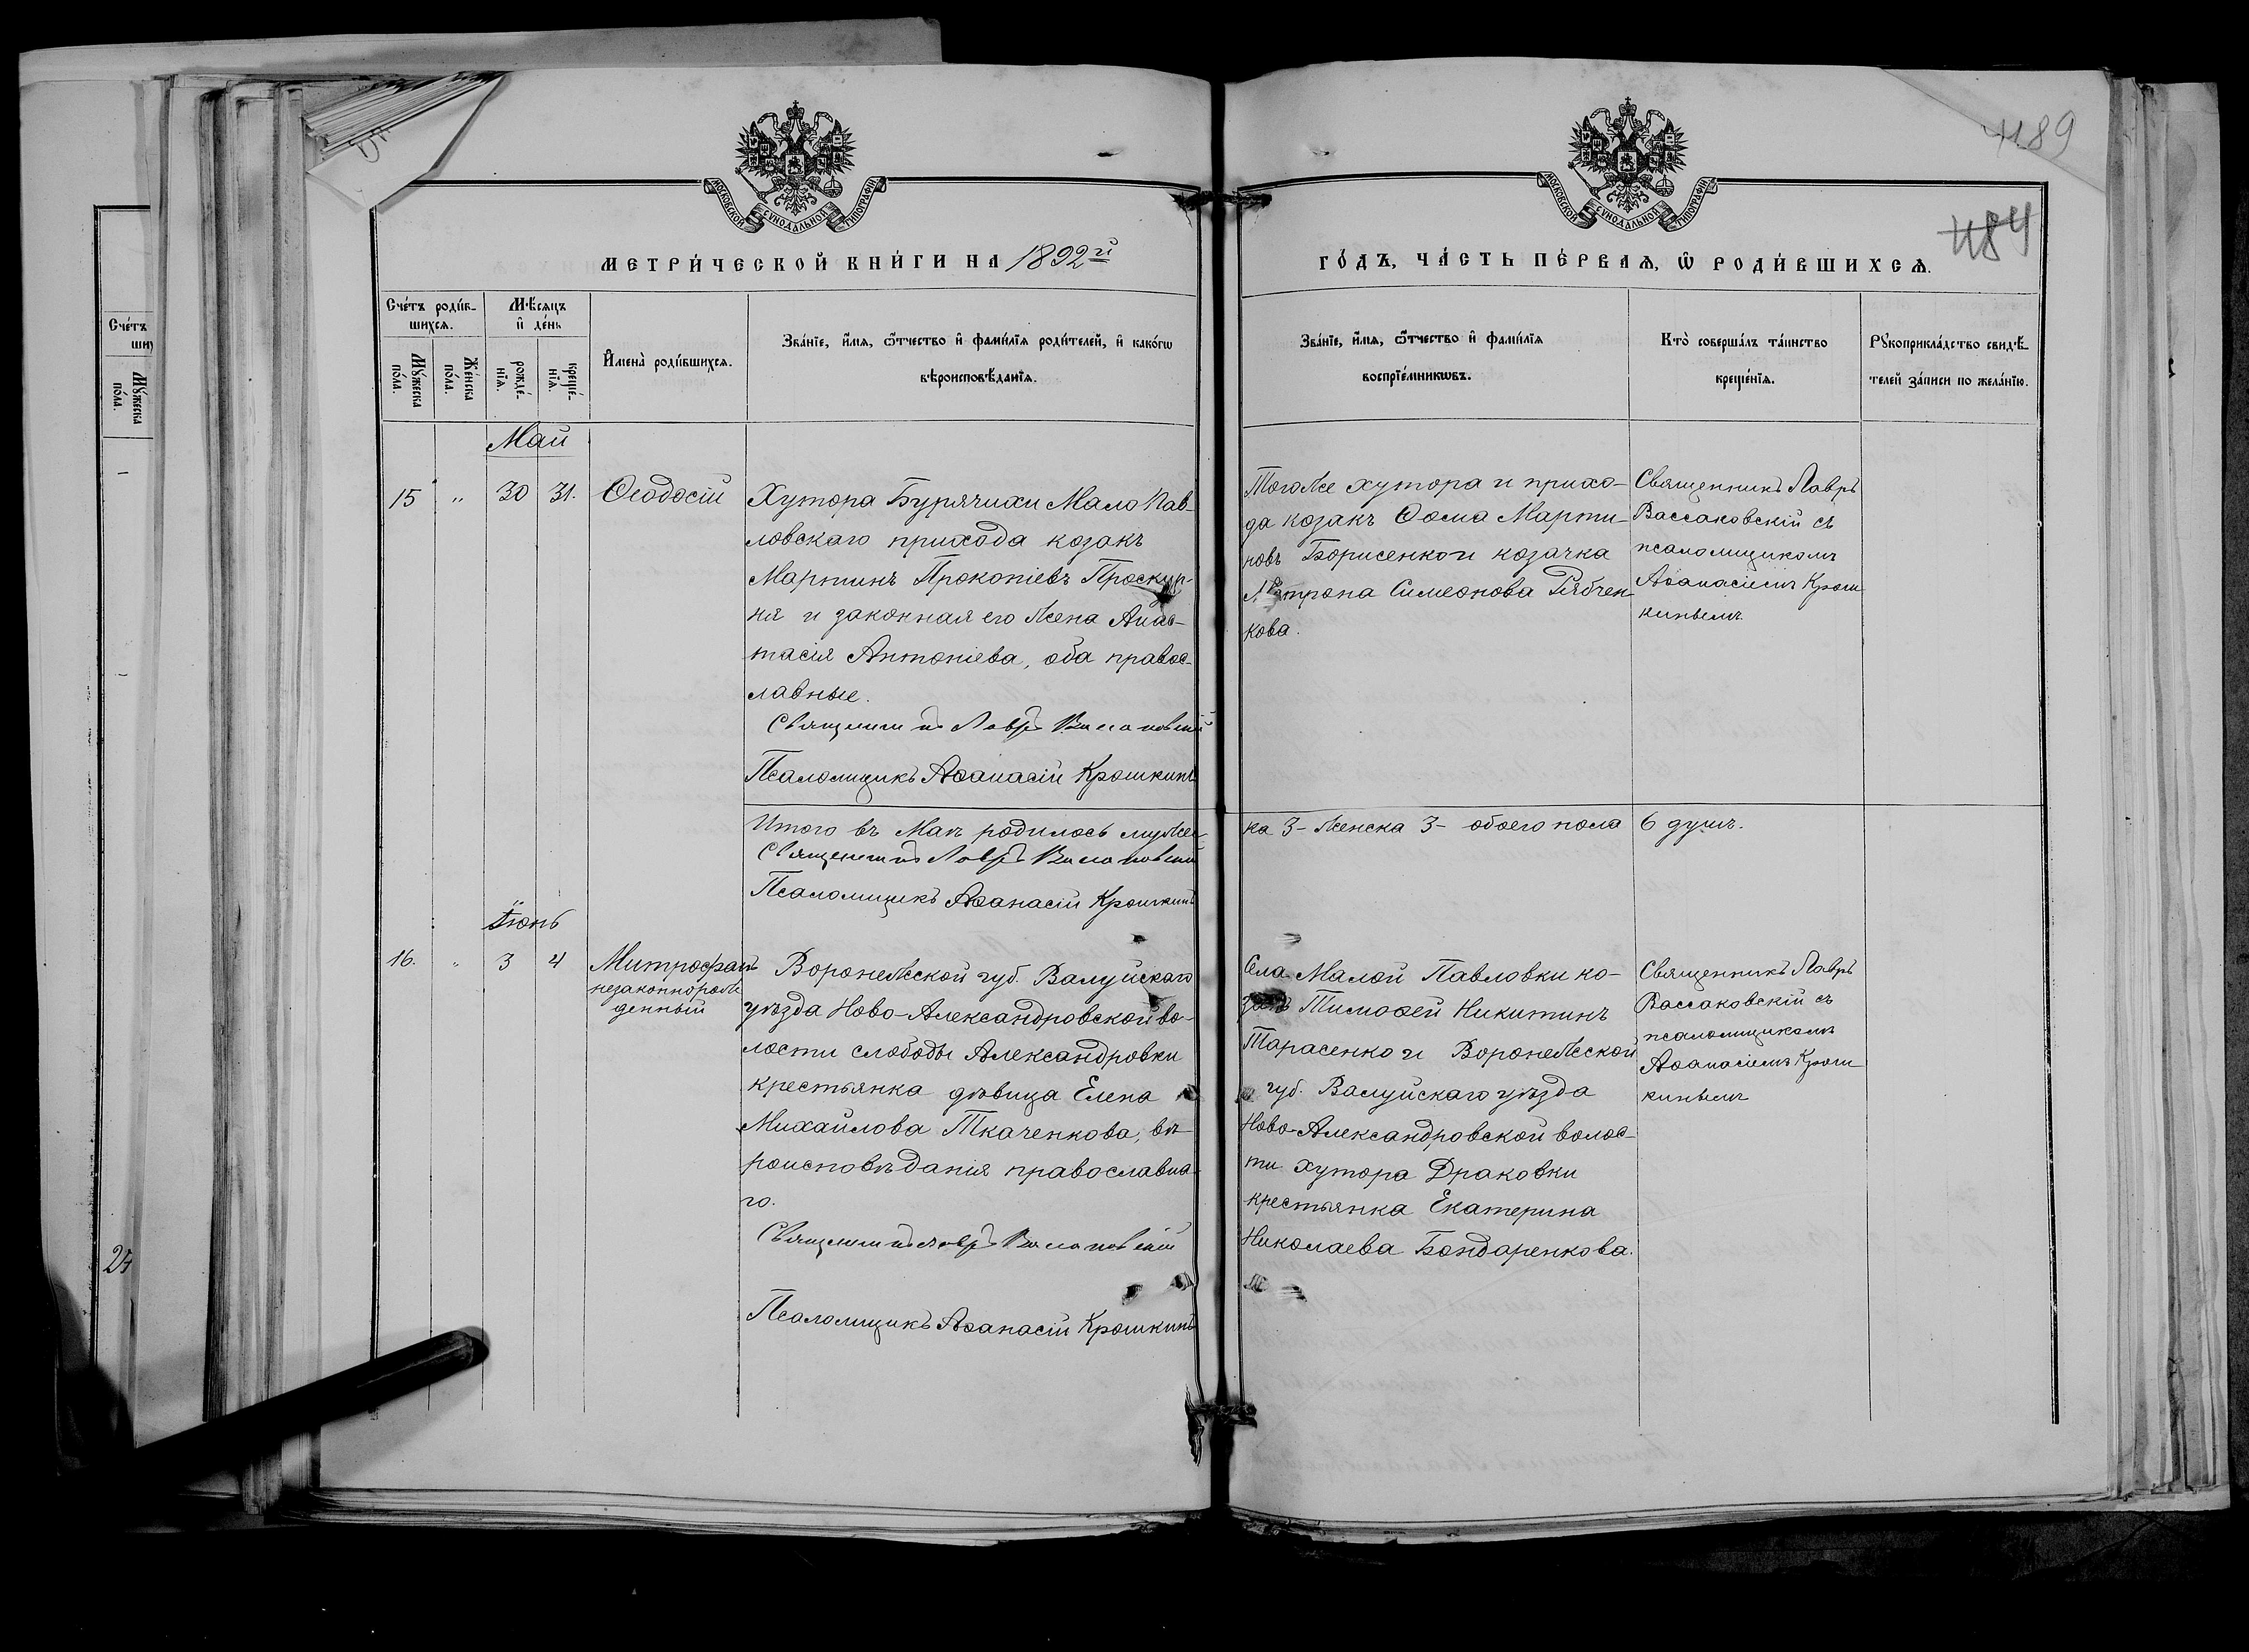 489
484
МОСКОВСКОЙ СѴНОДАЛЬНОЙ ТИПОГРАФІИ
МОСКОВСКОЙ СѴНОДАЛЬНОЙ ТИПОГРАФІИ
МЕТРИ́ЧЕСКОЙ КНИ́ГИ НА 1892й
ГО́ДЪ, ЧА́СТЬ ПЕ́РВАѦ, Ѡ҆ РОДИ́ВШИХСѦ.
Сче́тъ роди́в-
шихсѧ.
Мꙋ́жеска
по́ла.
Же́нска
по́ла.
Мѣ́сѧцъ
и҆ де́нь
рожде́-
нїѧ.
креще́-
нїѧ.
И҆мена̀ роди́вшихсѧ.
Зва́нїе, и҆́мѧ, ѻ҆́тчество и҆ фами́лїѧ роди́телей, и҆ како́гѡ
вѣроисповѣ́данїѧ.
Зва́нїе, и҆́мѧ, ѻ҆́тчество и҆ фами́лїѧ
воспрїе́мникѡвъ.
Кто̀ соверша́лъ та́инство
креще́нїѧ.
Рꙋкоприкла́дство свидѣ́-
телей за́писи по жела́нїю.
Сче́тъ
Мꙋ́жеска
по́ла.
Май
15 " 30 31. Ѳеодосій
Хутора Бурячихи Мало Пав-
ловскаго прихода козакъ
Мартинъ Прокопіевъ Проскур-
ня и законная его жена Анас-
тасія Антоніева, оба правос-
лавные.
Священникъ Лавръ Вассаковскій
Псаломщикъ Аѳанасій Крошкинъ
Тогоже хутора и прихо-
да козакъ Ѳома Марти-
новъ Борисенко и козачка
Матрона Симеонова Рябчен-
кова.
Священникъ Лавръ
Вассаковскій съ
псаломщикомъ
Аѳанасіемъ Крош
кинымъ.
Итого въ Маѣ родилось мужес-
ка 3- женска 3- обоего пола 6 душъ.
Священникъ Лавръ Вассаковскій
Псаломщикъ Аѳанасій Крошкинъ
Іюнь
16. " 3 4 Митрофанъ
незаконнорож
денный
Воронежской губ. Валуйскаго
уѣзда Ново-Александровской во-
лости слободы Александровки
крестьянка дѣвица Елена
Михайлова Ткаченкова, вѣ-
роисповѣданія православна-
го.
Священникъ Лавръ Вассаковскій
Псаломщикъ Аѳанасій Крошкинъ
Села Малой Павловки ко-
закъ Тимоѳей Никитинъ
Тарасенко и Воронежской
губ. Валуйскаго уѣзда
Ново-Александровской волос-
ти хутора Драковки
крестьянка Екатерина
Николаева Бондаренкова.
Священникъ Лавръ
Вассаковскій съ
псаломщикомъ
Аѳанасіемъ Крош
кинымъ
27